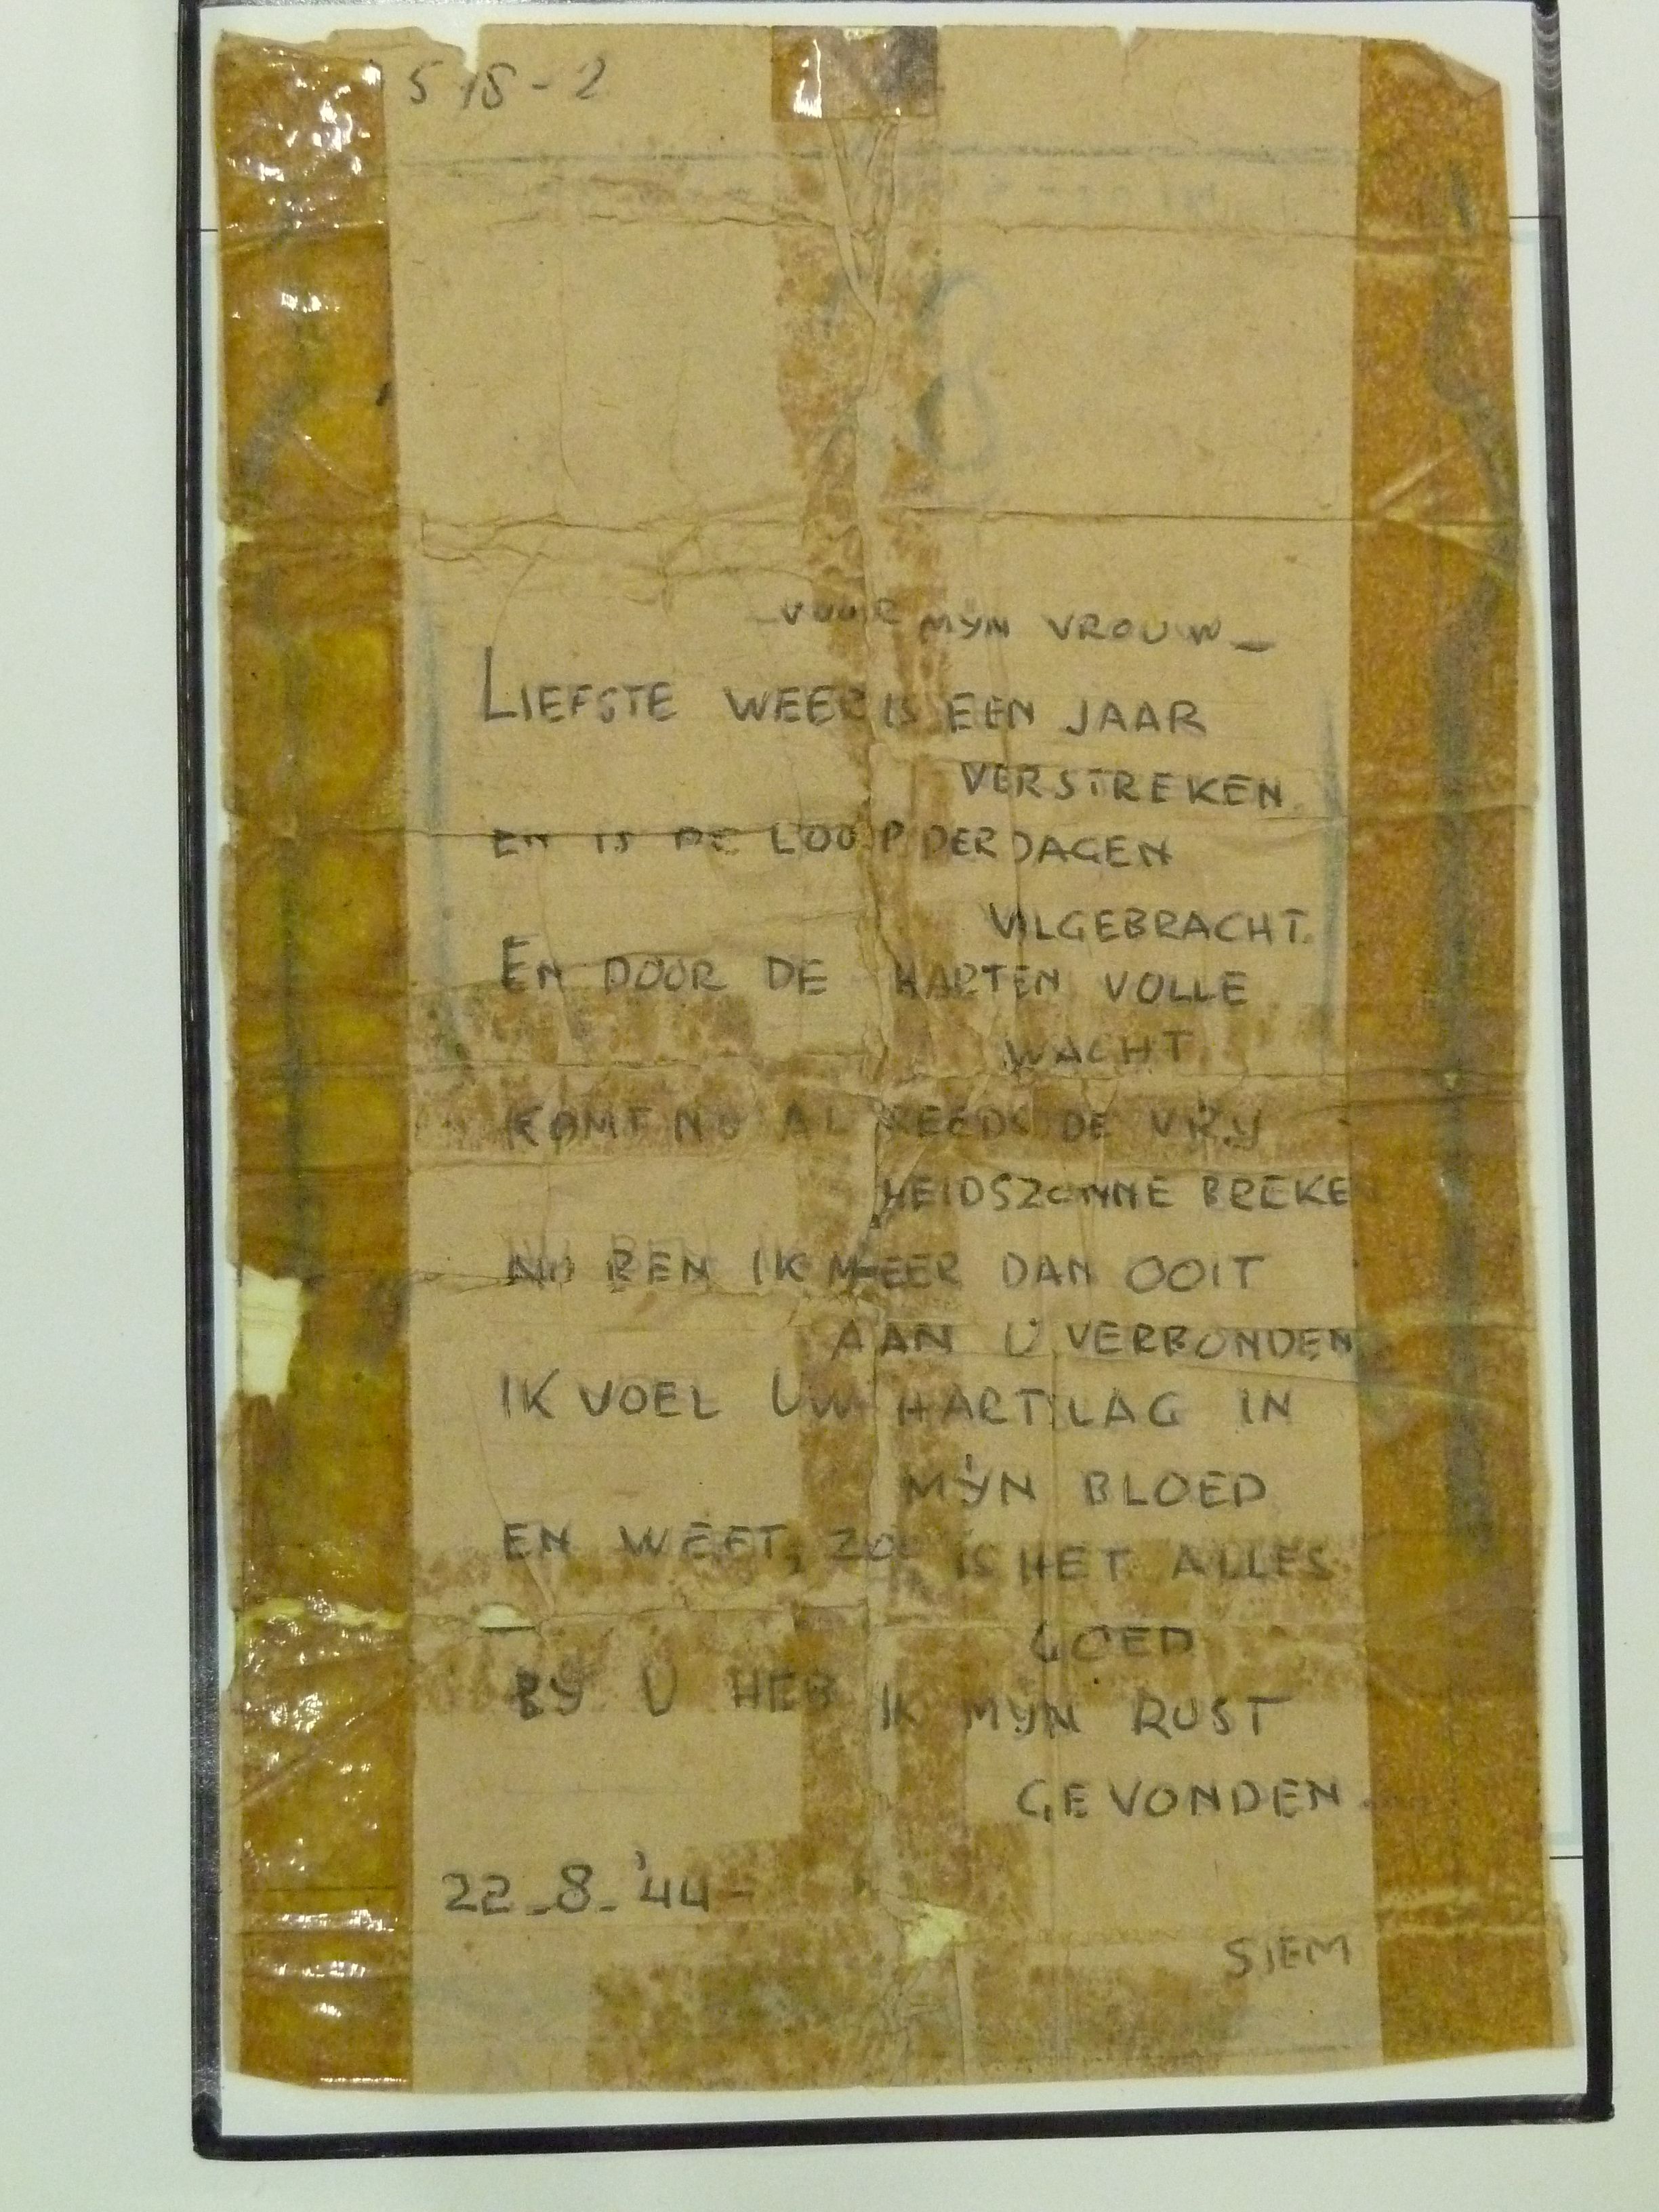 5 18 - 2
_ VOOR MYN VROUW _
LIEFSTE WEER IS EEN JAAR
VERSTREKEN
EN IS DE LOOP DER DAGEN
VOLGEBRACHT.
EN DOOR DE HARTEN VOLLE
WACHT
KOMT NU AL REEDS DE VRY
HEIDSZONNE BREKE
NU BEN IK MEER DAN OOIT
AAN U VERBONDEN
IK VOEL UW HARTSLAG IN
MYN BLOED
EN WEET, ZOO IS HET ALLES
GOED
BY U HEB IK MYN RUST
GEVONDEN
22_8_'44-
SIEM